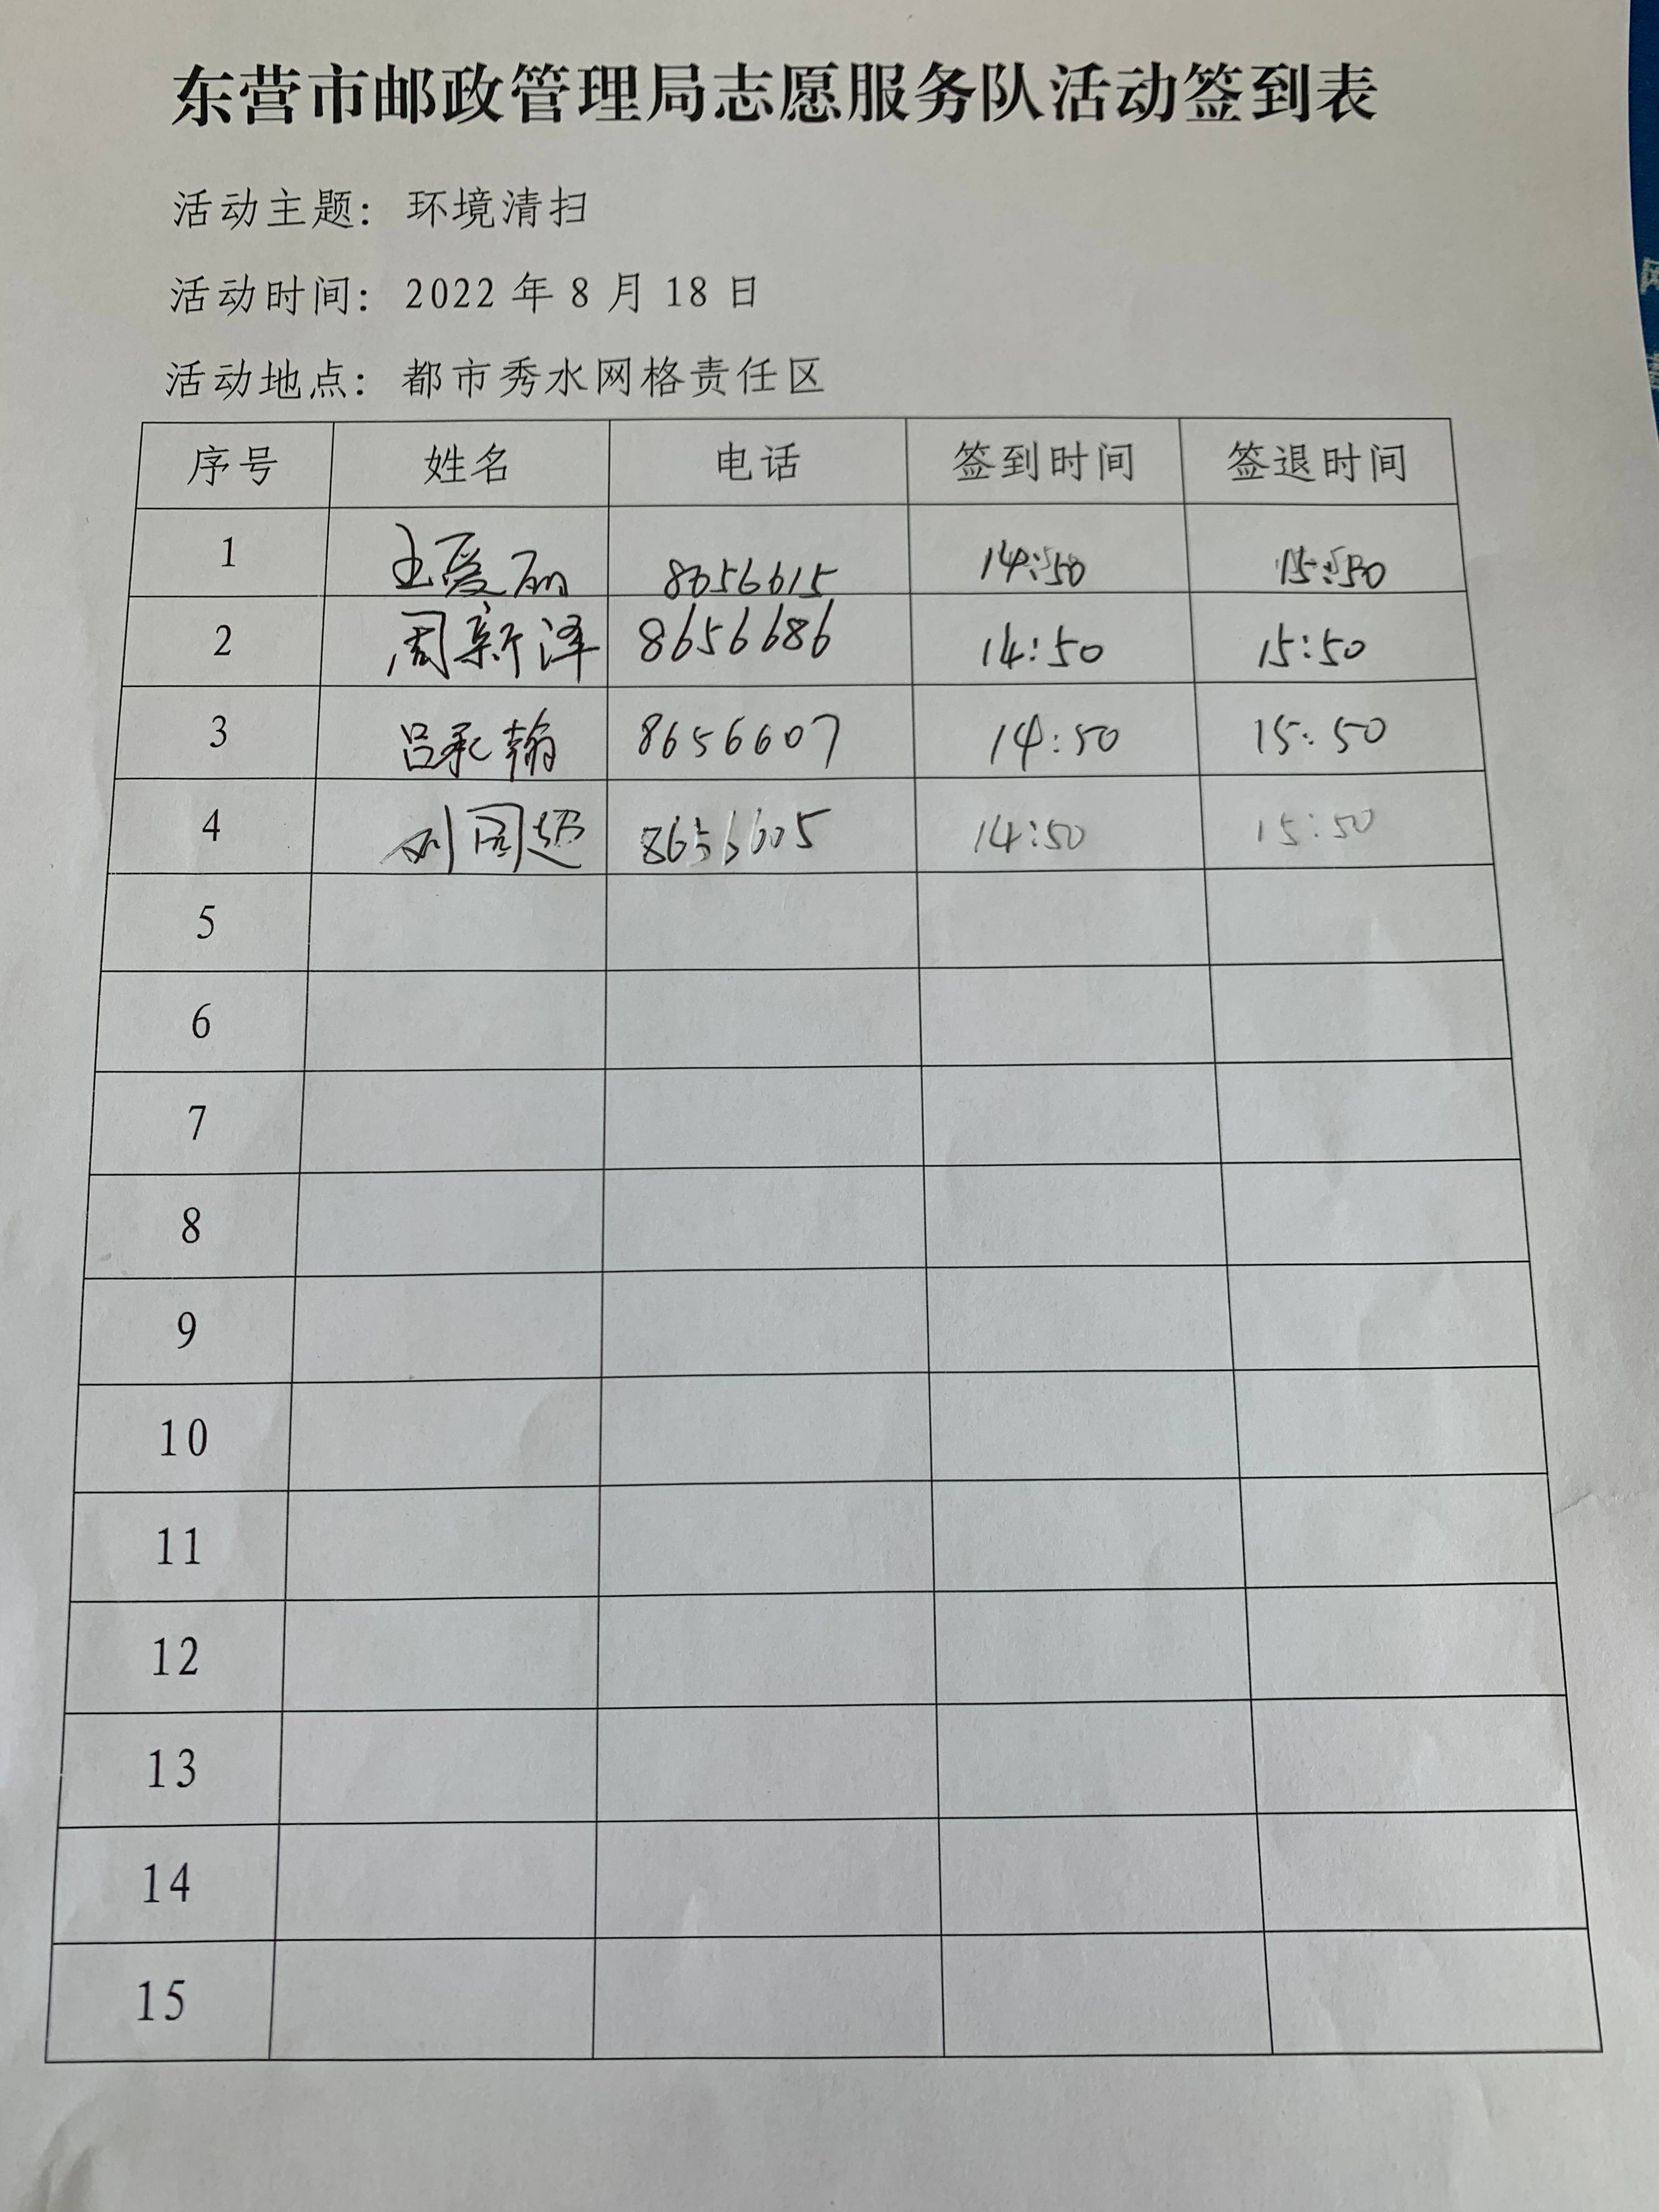 东营市邮政管理局志愿服务队活动签到表
活动主题：环境清扫
活动时间：2022 年 8 月 18 日
活动地点：都市秀水网格责任区
序号 姓名 电话 签到时间 签退时间
1 王爱丽 8656615 14:50 15:50
2 周新泽 8656686 14:50 15:50
3 吕承翰 8656607 14:50 15:50
4 刘同超 8656605 14:50 15:50
5
6
7
8
9
10
11
12
13
14
15